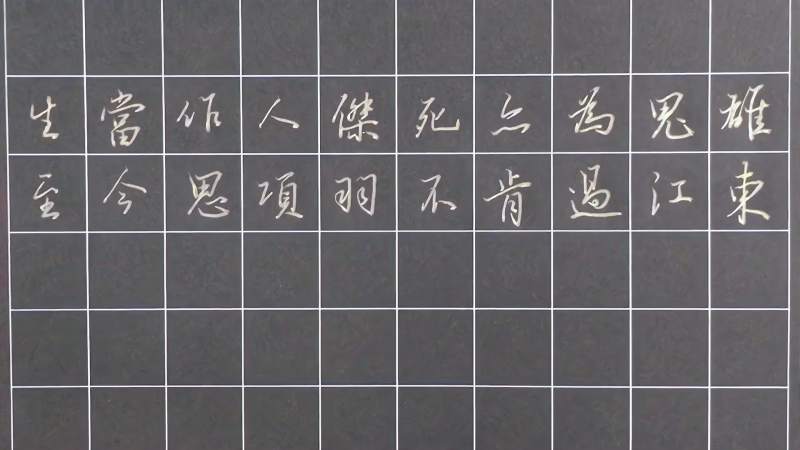 生當作人傑死亦為鬼雄
至今思項羽不肯過江東